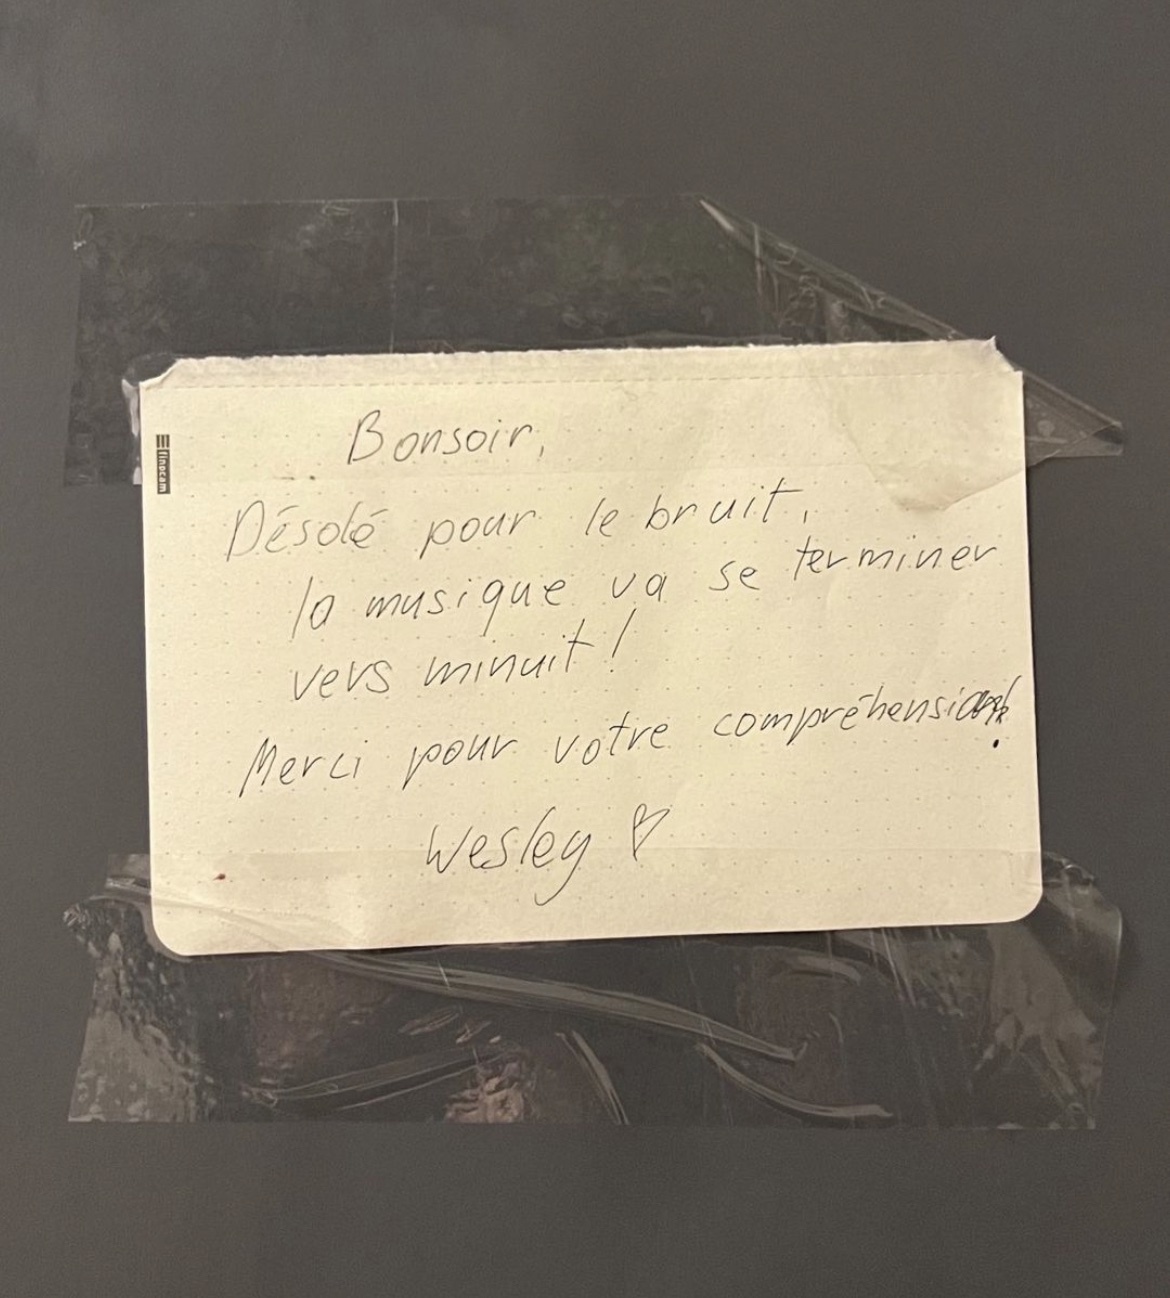 finocam
Bonsoir,
Désolé pour le bruit,
la musique va se terminer
vers minuit!
Merci pour votre compréhension!
Wesley ♡